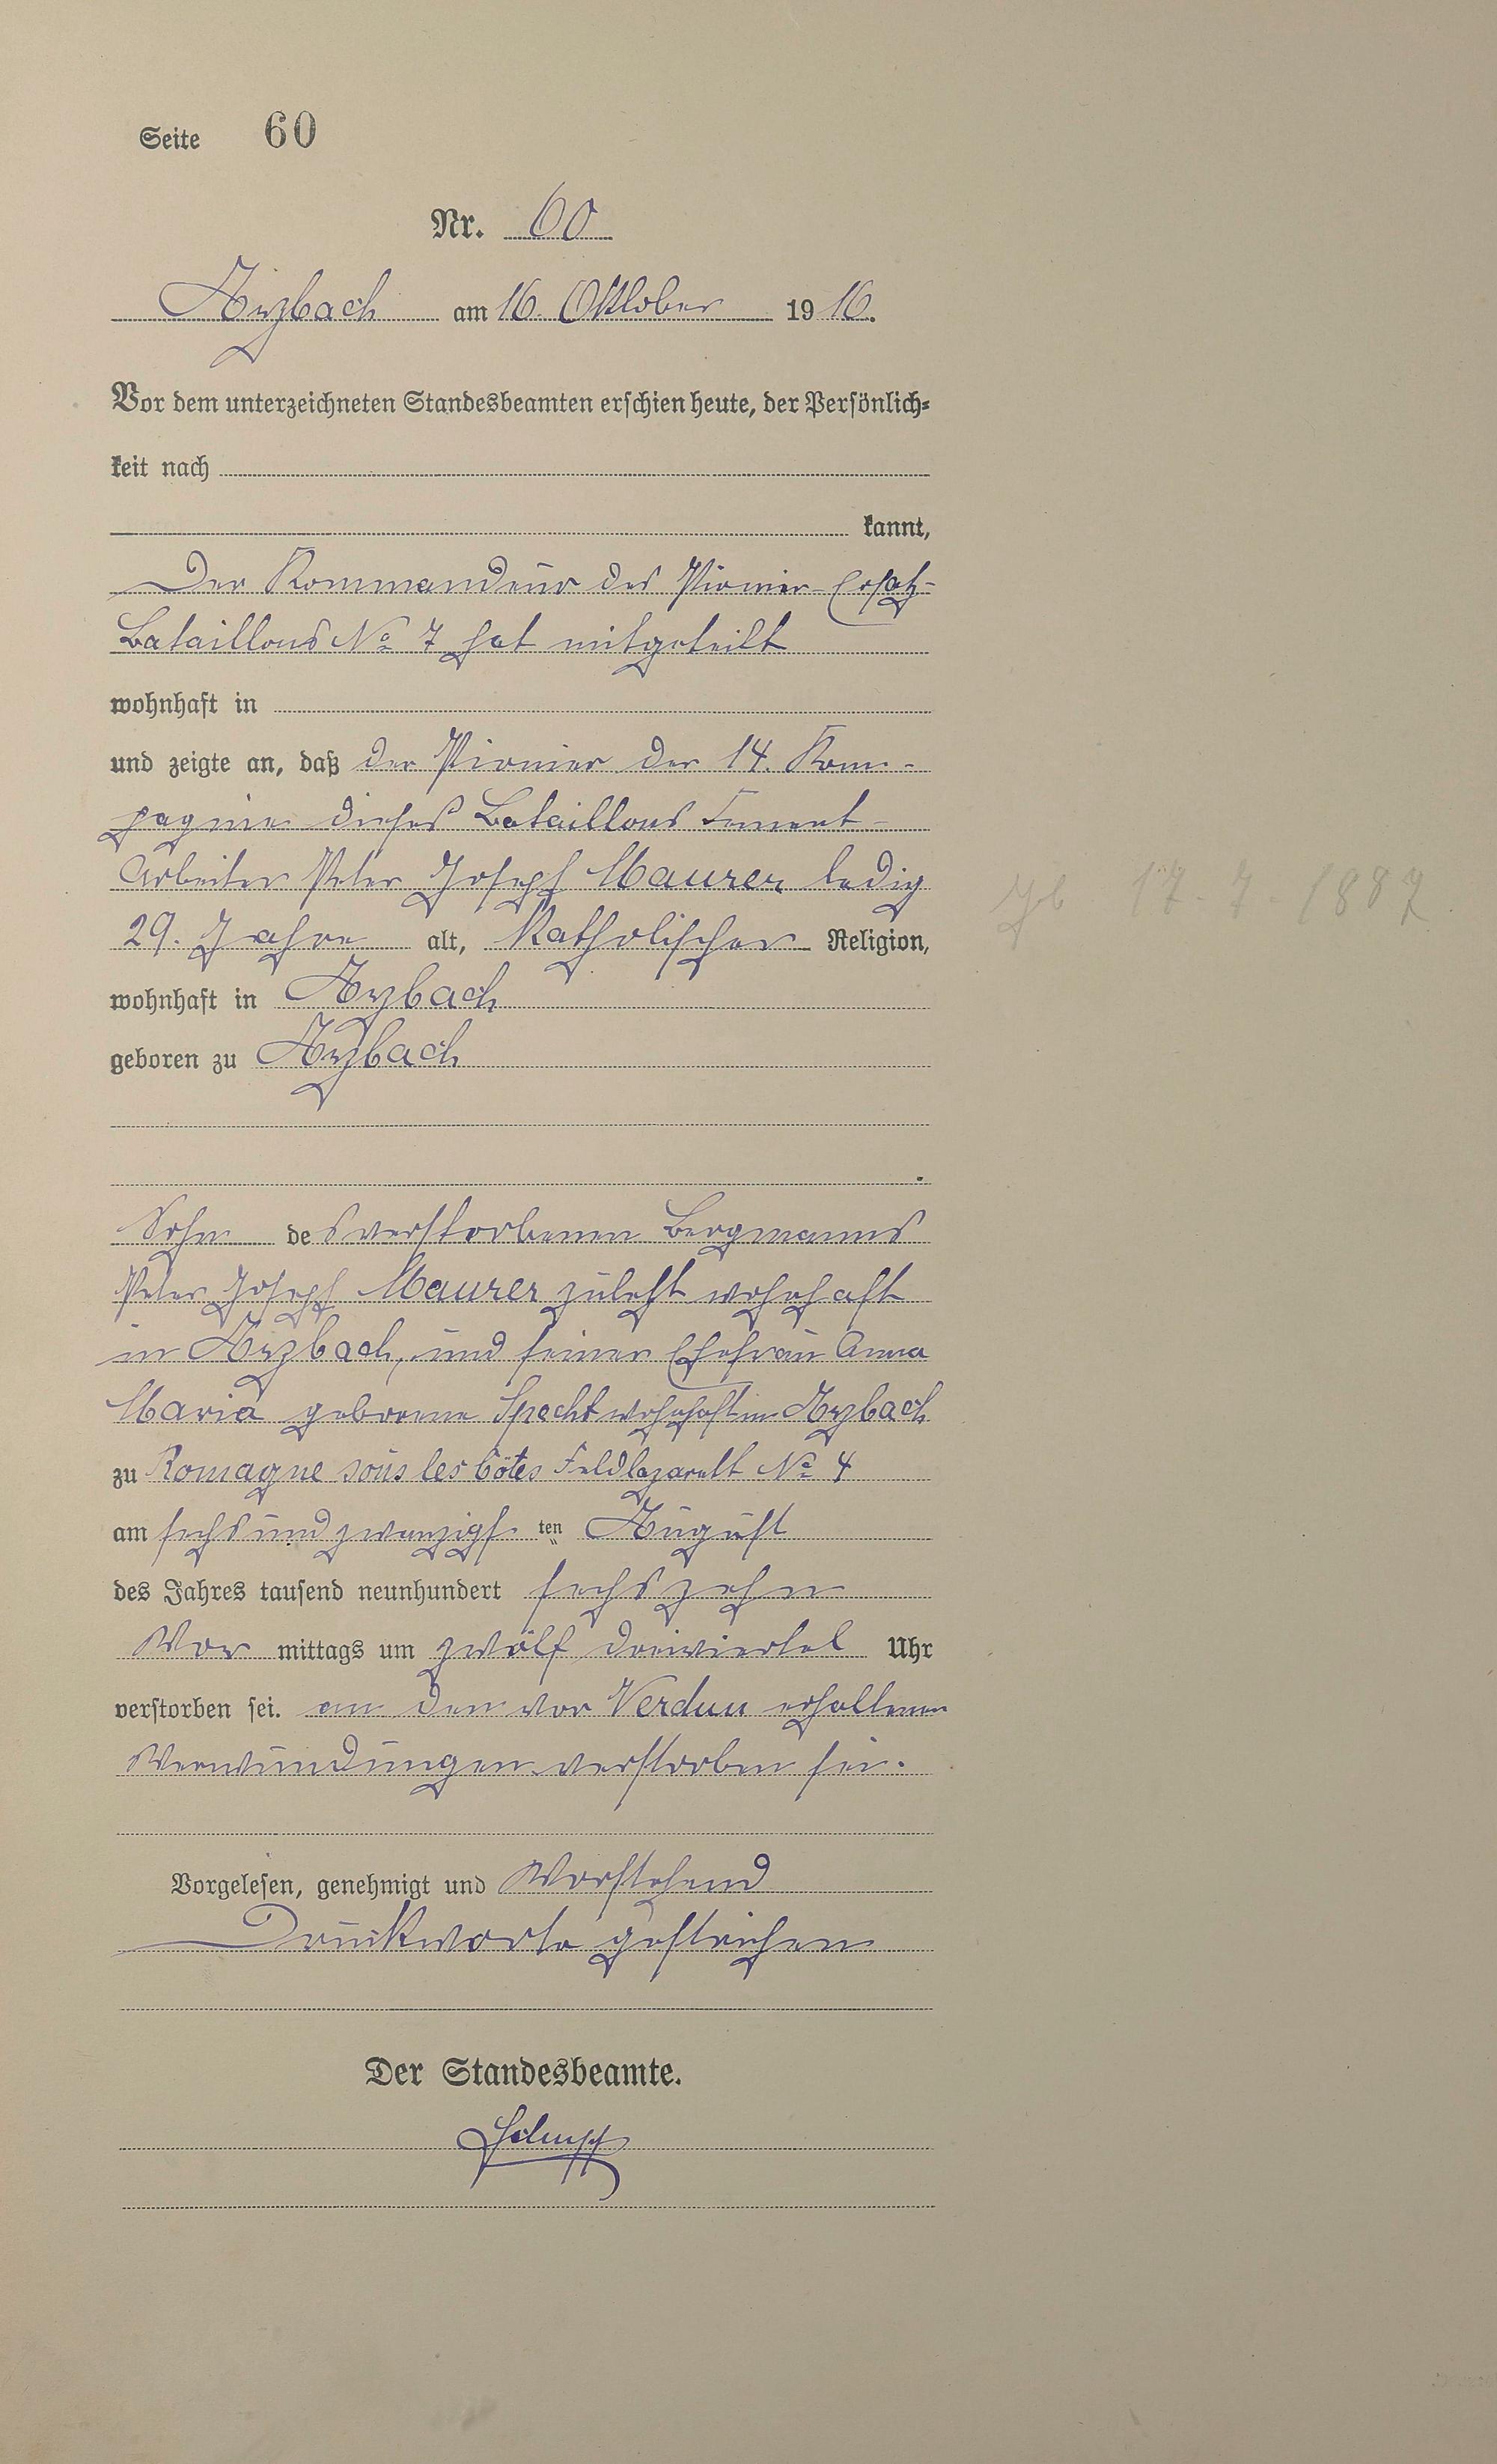 Seite 60
Nr. 60
Arzbach am 16. Oktober 1916.
Vor dem unterzeichneten Standesbeamten erschien heute, der Persönlich=
keit nach
kannt,
Der Kommandeur des Pionier-Ersatz-
Bataillons No 7 hat mitgeteilt
wohnhaft in
und zeigte an, daß der Pionier der 14. Kom-
pagnie dieses Bataillons Fement-
Arbeiter Peter Joseph Maurer ledig
29. Jahre alt, Katholischer Religion,
wohnhaft in Arzbach
geboren zu Arzbach
Sohn des verstorbenen Bergmanns
Peter Joseph Maurer zuletzt wohnhaft
in Arzbach, und seiner Ehefrau Anna
Maria geborene Specht wohnhaft in Arzbach
zu Romagne sous les Côtes Feldlazarett No 4
am sechsundzwanzigsten August
des Jahres tausend neunhundert sechszehn
Vor mittags um zwölf dreiviertel Uhr
verstorben sei. an den vor Verdun erhaltenen
Verwundungen verstorben sei.
Vorgelesen, genehmigt und Vorstehend
Druckworte gestrichen
Der Standesbeamte.
Gb 17.7.1887